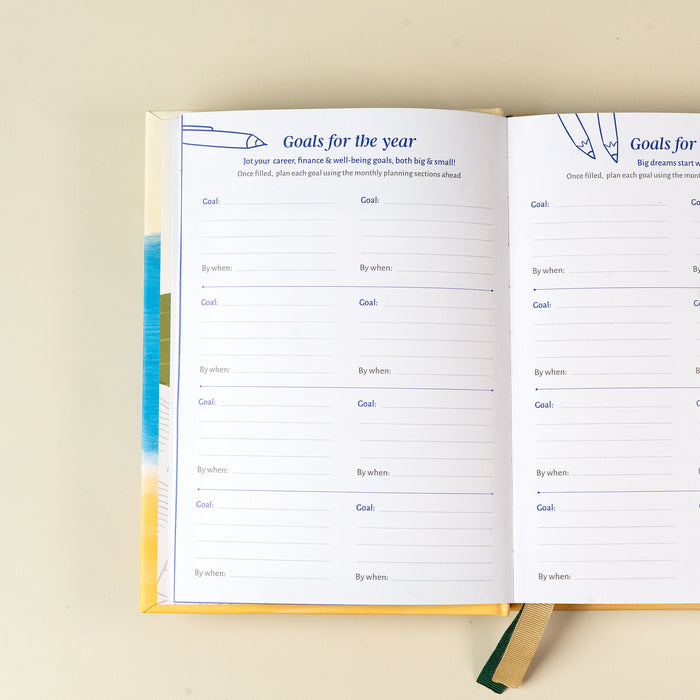 Goals for the year
Jot your career, finance & well-being goals, both big & small!
Once filled, plan each goal using the monthly planning sections ahead
Goal: Goal:
By when: By when:
Goal: Goal:
By when: By when:
Goal: Goal:
By when: By when:
Goal: Goal:
By when: By when:
Goals for
Big dreams start
Once filled, plan each goal using the
Goal:
By when:
Goal:
By when:
Goal:
By when:
Goal:
By when: